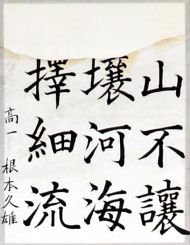 山不讓
壤河海
擇細流
高一 根本久雄